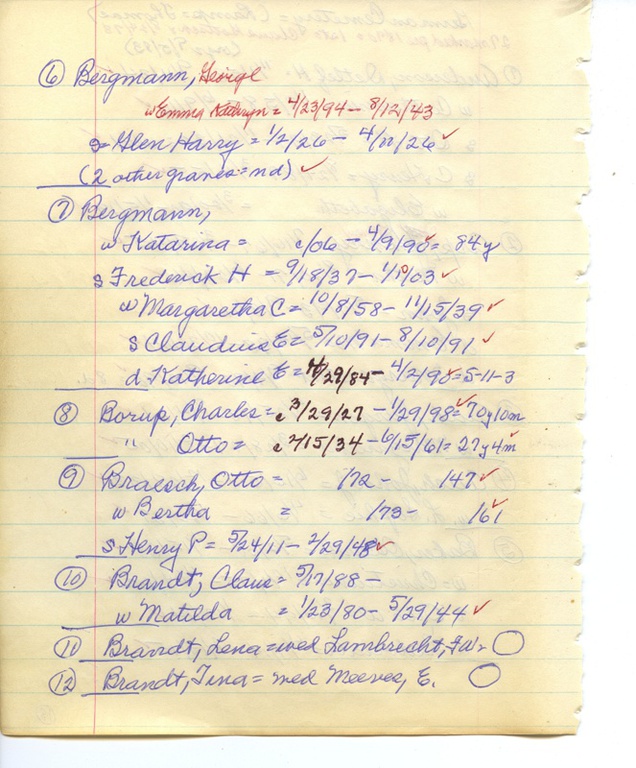 ⑥ Bergmann, George
w Emma Kathryn = 4/23/94 - 8/12/43
s = Glen Harry = 1/2/26 - 4/11/26 ✓
(2 other graves = nd) ✓
⑦ Bergmann,
w Katarina = c/06 - 4/9/90 ✓ = 84y
s Frederick H = 9/18/37 - 1/19/03 ✓
w Margaretha C = 10/8/58 - 11/15/39 ✓
s Claudius E = 5/10/91 - 8/10/91 ✓
d Katherine E = 4/29/84 - 4/2/90 ✓ = 5-11-3
⑧ Borup, Charles = c 3/29/27 - 1/29/98 ✓ = 70y10m
" Otto = c 2/15/34 - 6/15/61 = 27y4m ✓
⑨ Braesch, Otto = /72 - /47 ✓
w Bertha = /73 - /61 ✓
s Henry P = 5/24/11 - 2/29/48 ✓
⑩ Brandt, Claus = 5/17/88 -
w Matilda = 1/23/80 - 5/29/44 ✓
⑪ Brandt, Lena = wed Lambrecht,
⑫ Brandt, Tina = wed Meeves, E.